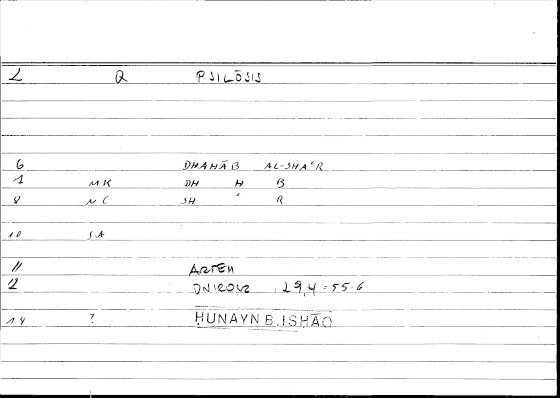 2 Q PSILŌSIS
6 DHAHĀB AL-SHAʿR
1 MK DH H B
8 NC SH ʿ R
10 SA
11 ARTEM
12 ONIROCR 29,4 = 55.6
14 ? ḤUNAYN B. ISḤĀQ